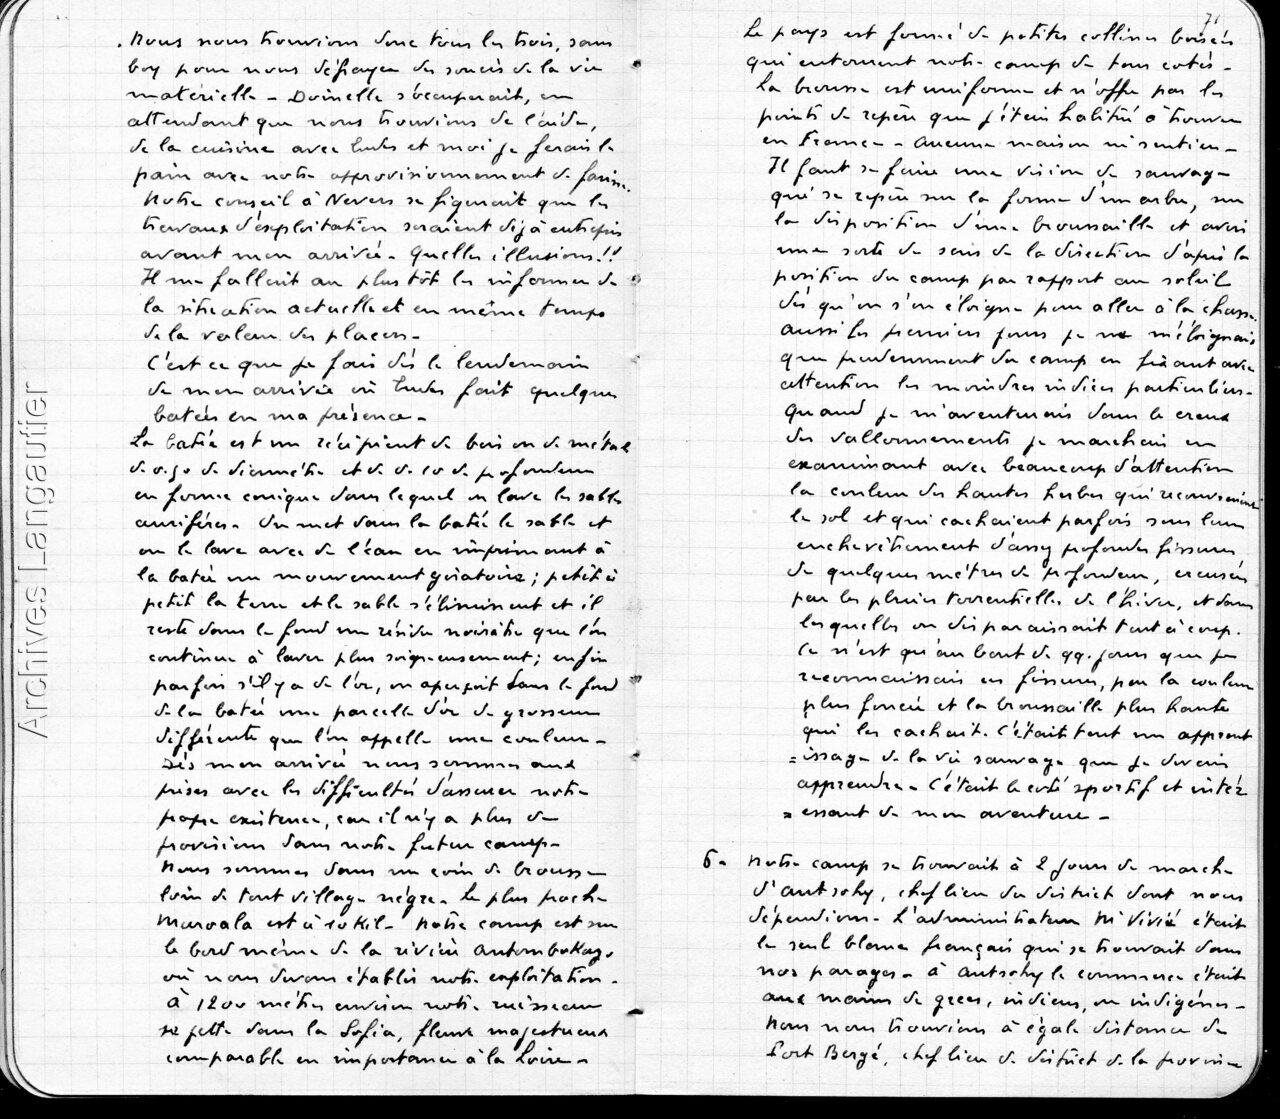 . Nous nous trouvions donc tous les trois, sans
boy pour nous défrayer des soucis de la vie
matérielle - Doinelle s'occuperait, en
attendant que nous trouvions de l'aide,
de la cuisine avec Eudes et moi je ferais le
pain avec notre approvisionnement de farine.
Notre conseil à Nevers se figurait que les
travaux d'exploitation seraient déjà entrepris
avant mon arrivée - Quelles illusions !!
Il me fallait au plus tôt les informer de
la situation actuelle et en même temps
de la valeur des placers -
C'est ce que je fais dès le lendemain
de mon arrivée où Eudes fait quelques
batées en ma présence -
La batée est un récipient de bois ou de métal
de 0.30 de diamètre et de 0.10 de profondeur
en forme conique dans lequel on lave les sables
aurifères - On met dans la batée le sable et
on le lave avec de l'eau en imprimant à
la batée un mouvement giratoire ; petit à
petit la terre et le sable s'éliminent et il
reste dans le fond un résidu noirâtre que l'on
continue à laver plus soigneusement ; enfin
parfois s'il y a de l'or, on aperçoit dans le fond
de la batée une parcelle d'or de grosseur
différente que l'on appelle une couleur -
Dès mon arrivée nous sommes aux
prises avec les difficultés d'assurer notre
propre existence, car il n'y a plus de
provisions dans notre futur camp -
Nous sommes dans un coin de brousse
loin de tout village nègre - Le plus proche
Marovala est à 10 Kil - Notre camp est sur
le bord même de la rivière Antombokazo
où nous devons établir notre exploitation -
à 1200 mètres environ notre ruisseau
se jette dans la Sofia, fleuve majestueux
comparable en importance à la Loire -
71
Le pays est formé de petites collines boisées
qui entourent notre camp de tous cotés -
La brousse est uniforme et n'offre pas les
points de repère que j'étais habitué à trouver
en France - Aucune maison ni sentier -
Il faut se faire une vision de sauvage
qui se repère sur la forme d'un arbre, sur
la disposition d'une broussaille et avoir
une sorte de sens de la direction d'après la
position du camp par rapport au soleil
dès qu'on s'en éloigne pour aller à la chasse.
Aussi les premiers jours je ne m'éloignais
que prudemment du camp en fixant avec
attention les moindres indices particuliers -
Quand je m'aventurais dans le creux
des vallonnements je marchais en
examinant avec beaucoup d'attention
la couleur des hautes herbes qui recouvraient
le sol et qui cachaient parfois sous leur
enchevêtrement d'assez profondes fissures
de quelques mètres de profondeur, creusées
par les pluies torrentielles de l'hiver, et dans
lesquelles on disparaissait tout à coup.
Ce n'est qu'au bout de qq. jours que je
reconnaissais ces fissures, par la couleur
plus foncée et la broussaille plus haute
qui les cachait. C'était tout un apprent
=issage de la vie sauvage que je devais
apprendre - C'était le coté sportif et intér
=essant de mon aventure -
6 - Notre camp se trouvait à 2 jours de marche
d'Antsohy, chef lieu du district dont nous
dépendions - L'administrateur Mr Vivié était
le seul blanc français qui se trouvait dans
nos parages - à Antsohy le commerce était
aux mains de grecs, indiens, ou indigènes -
Nous nous trouvions à égale distance de
Port Bergé, chef lieu de district de la provin-